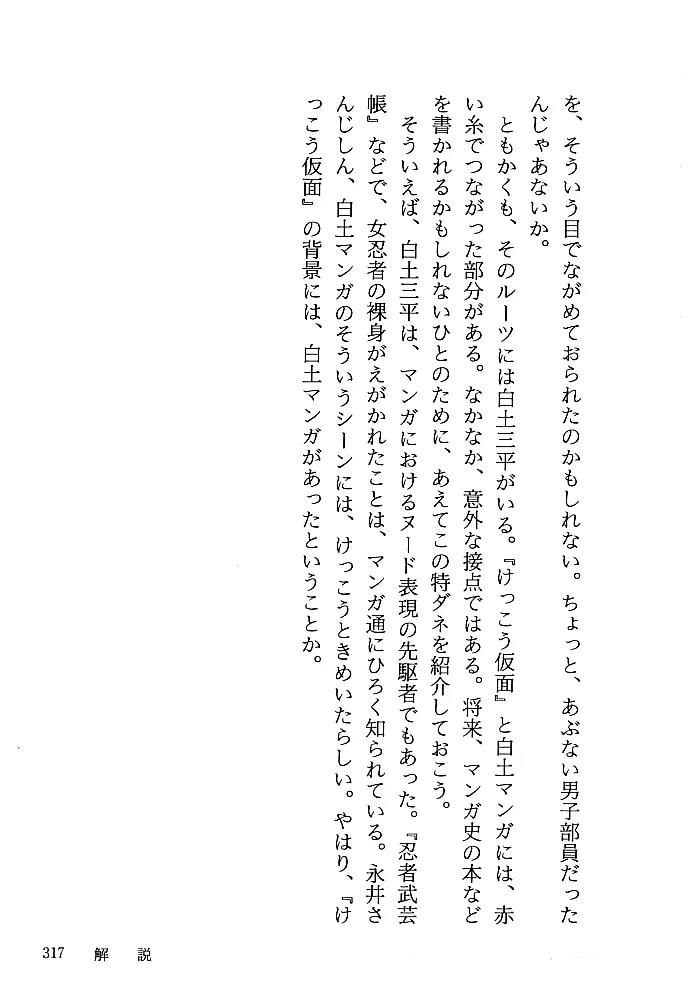 を、そういう目でながめておられたのかもしれない。ちょっと、あぶない男子部員だった
んじゃあないか。
ともかくも、そのルーツには白土三平がいる。『けっこう仮面』と白土マンガには、赤
い糸でつながった部分がある。なかなか、意外な接点ではある。将来、マンガ史の本など
を書かれるかもしれないひとのために、あえてこの特ダネを紹介しておこう。
そういえば、白土三平は、マンガにおけるヌード表現の先駆者でもあった。『忍者武芸
帳』などで、女忍者の裸身がえがかれたことは、マンガ通にひろく知られている。永井さ
んじしん、白土マンガのそういうシーンには、けっこうときめいたらしい。やはり、『け
っこう仮面』の背景には、白土マンガがあったということか。
317 解説